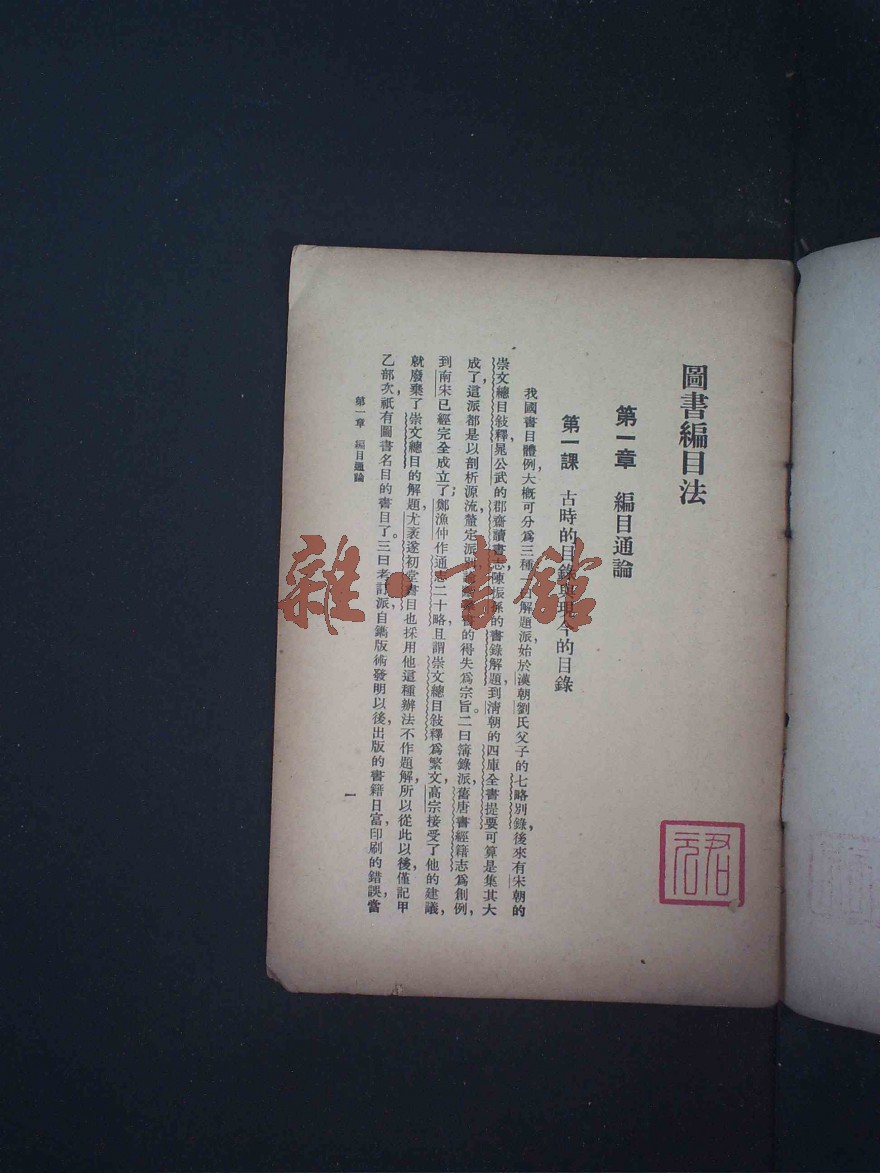 圖書編目法
第一章 編目通論
第一課 古時的目錄與現今的目錄
我國書目體例,大概可分爲三種一曰解題派始於漢朝劉氏父子的七略別錄,後來有宋朝的
崇文總目敍釋,晁公武的郡齋讀書志,陳振孫的書錄解題,到清朝的四庫全書提要可算是集其大
成了,這派都是以剖析源流,釐定派別書的得失爲宗旨。二曰簿錄派,舊唐書經籍志爲創例,
到南宋已經完全成立了;鄭漁仲作通志二十略,且謂崇文總目敍釋爲繁文,高宗接受了他的建議,
就廢棄了崇文總目的解題,尤袤遂初堂書目也採用他這種辦法不作題解,所以從此以後,僅記甲
乙部次,祇有圖書名目的書目了。三曰考訂派自鐫版術發明以後,出版的書籍日富,印刷的錯誤,當
第一章 編目通論
一
雜·書館
君